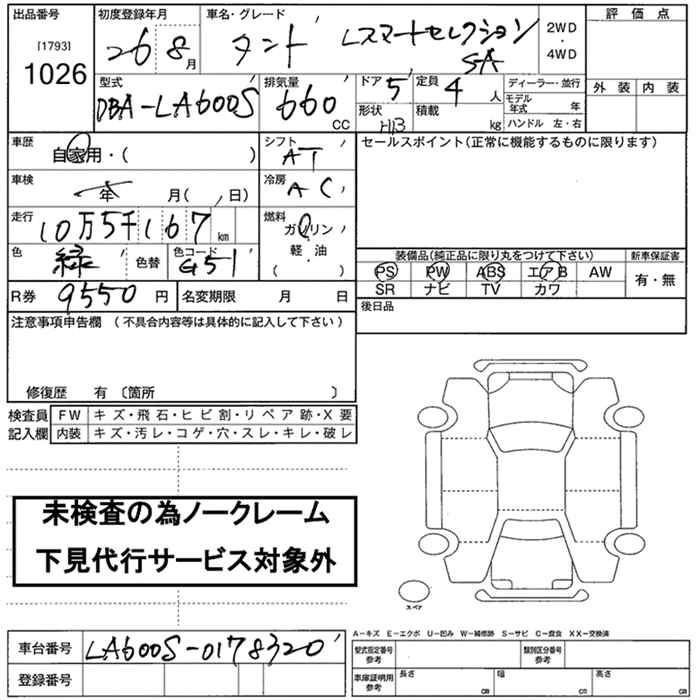 出品番号 初度登録年月 車名・グレード 評価点
[1793] 26 8月 タント LスマートセレクションSA 2WD・4WD
1026
型式 排気量 ドア 5 定員 4人 ディーラー・並行 外装 内装
DBA-LA600S 660 CC 形状 H/B 積載 kg モデル年式 年
ハンドル 左・右
車歴 自家用・( ) シフト AT セールスポイント(正常に機能するものに限ります)
車検 年 月( 日) 冷房 AC
走行 10万5千167km 燃料 ガソリン・軽油( )
色 緑 色替 色コード G51 装備品(純正品に限り丸をつけて下さい) 新車保証書
PS PW ABS エアB AW 有・無
R券 9550円 名変期限 月 日 SR ナビ TV カワ
注意事項申告欄(不具合内容等は具体的に記入して下さい) 後日品
修復歴 有〔箇所 〕
検査員 FW キズ・飛石・ヒビ割・リペア跡・X要
記入欄 内装 キズ・汚レ・コゲ・穴・スレ・キレ・破レ
未検査の為ノークレーム
下見代行サービス対象外
スペア
A-キズ E-エクボ U-凹み W-補修跡 S-サビ C-腐食 XX-交換済
車台番号 LA600S-0178320 型式指定番号 参考 類別区分番号 参考
登録番号 車庫証明用 参考 長さ cm 幅 cm 高さ cm